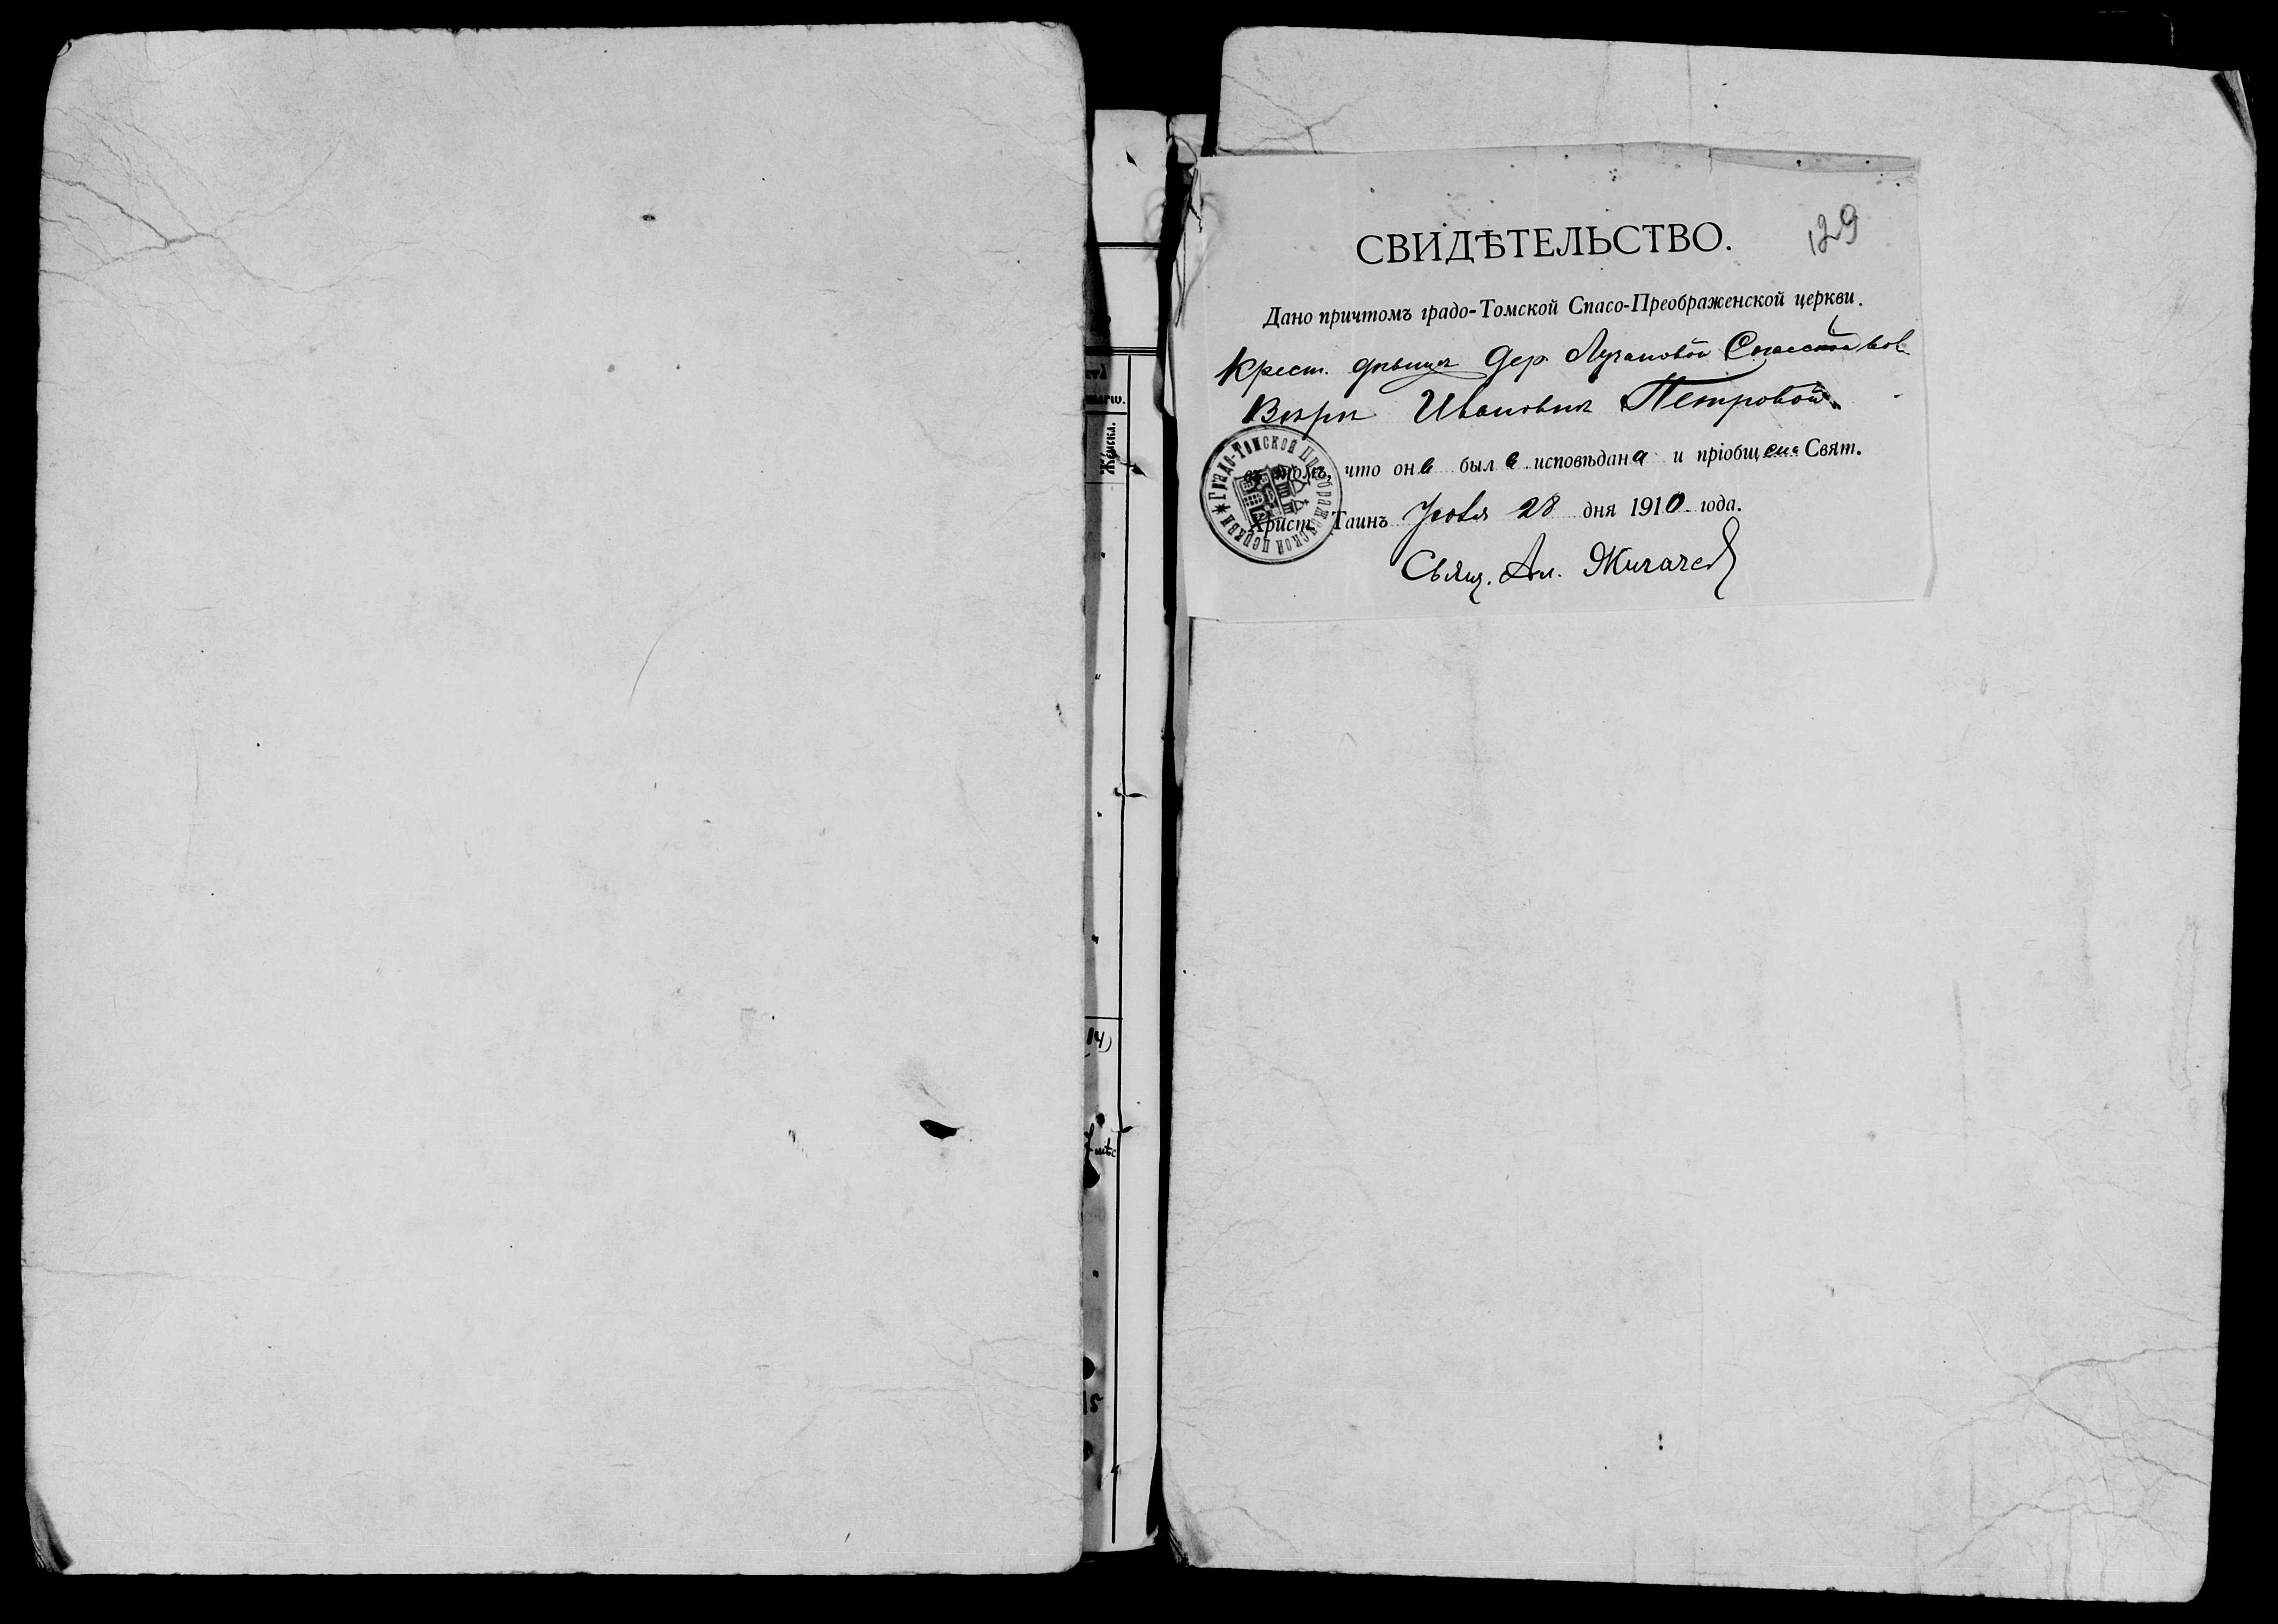 129
СВИДѢТЕЛЬСТВО.
Дано причтомъ градо-Томской Спасо-Преображенской церкви.
Крест. дѣвицѣ дер. Лучановой Спасской вол.
Вѣрѣ Ивановнѣ Петровой
въ томъ, что она была исповѣдана и пріобщена Свят.
Христ. Таинъ 28 дня 1910 года.
Свящ. Ал. Жигачев
Градо-Томской Преображенской церкви
Женска.
14
15